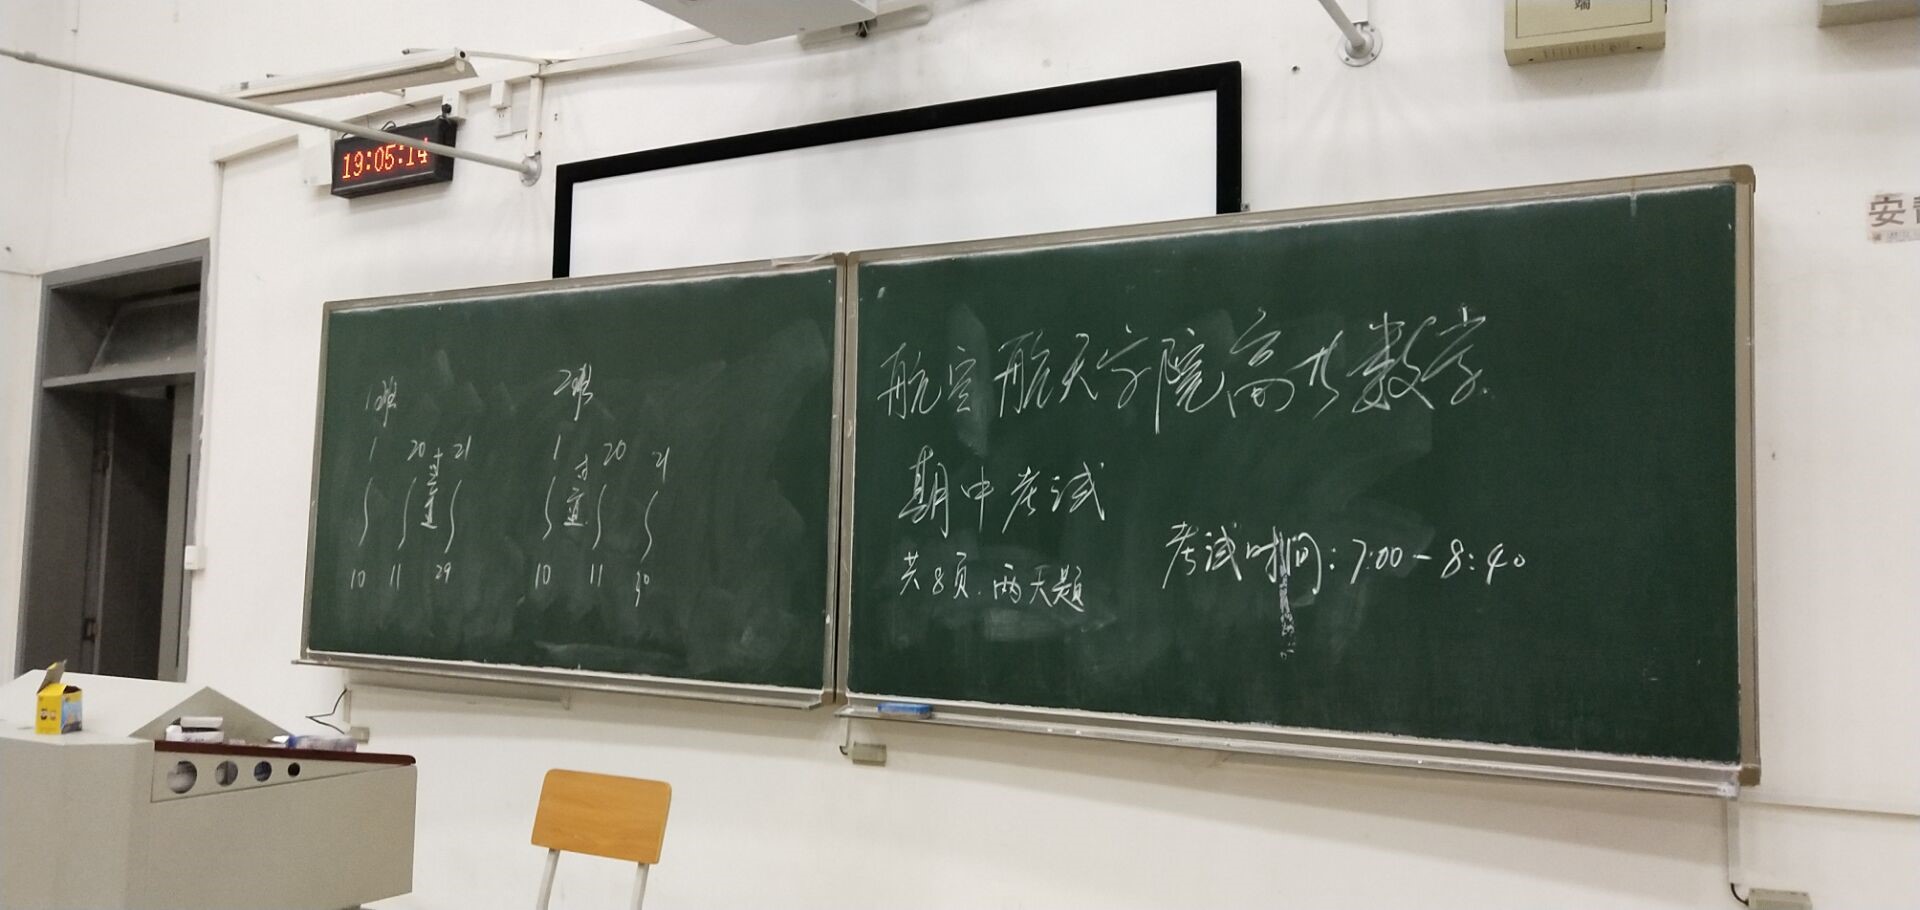 19:05:14
端
安
1班 2班
1 20 过道 21 1 过道 20 21
10 11 29 10 11 30
航空航天学院高等数学
期中考试
考试时间:7:00-8:40
共8页.两大题